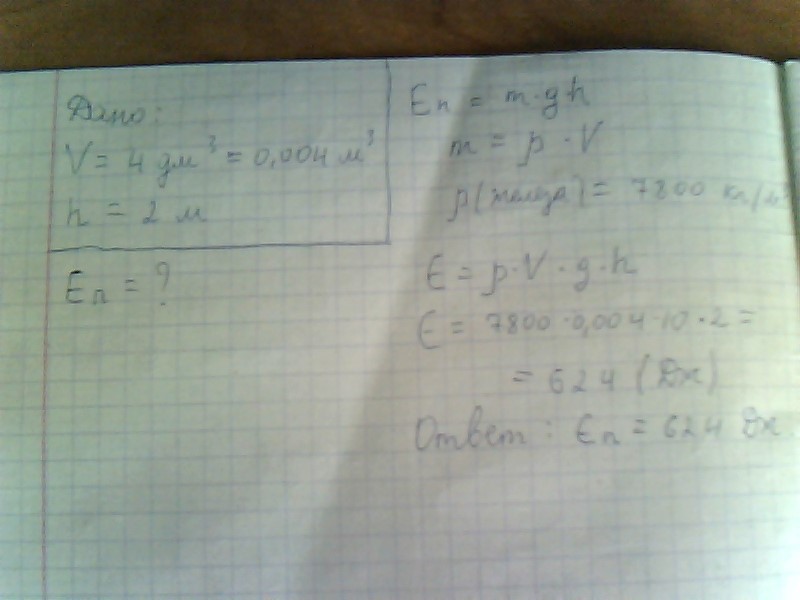 Дано:
V = 4 дм³ = 0,004 м³
h = 2 м
Eп = ?
Eп = m·g·h
m = ρ · V
ρ(железа) = 7800 кг/м³
E = ρ·V·g·h
E = 7800·0,004·10·2 =
= 624 (Дж)
Ответ: Eп = 624 Дж.